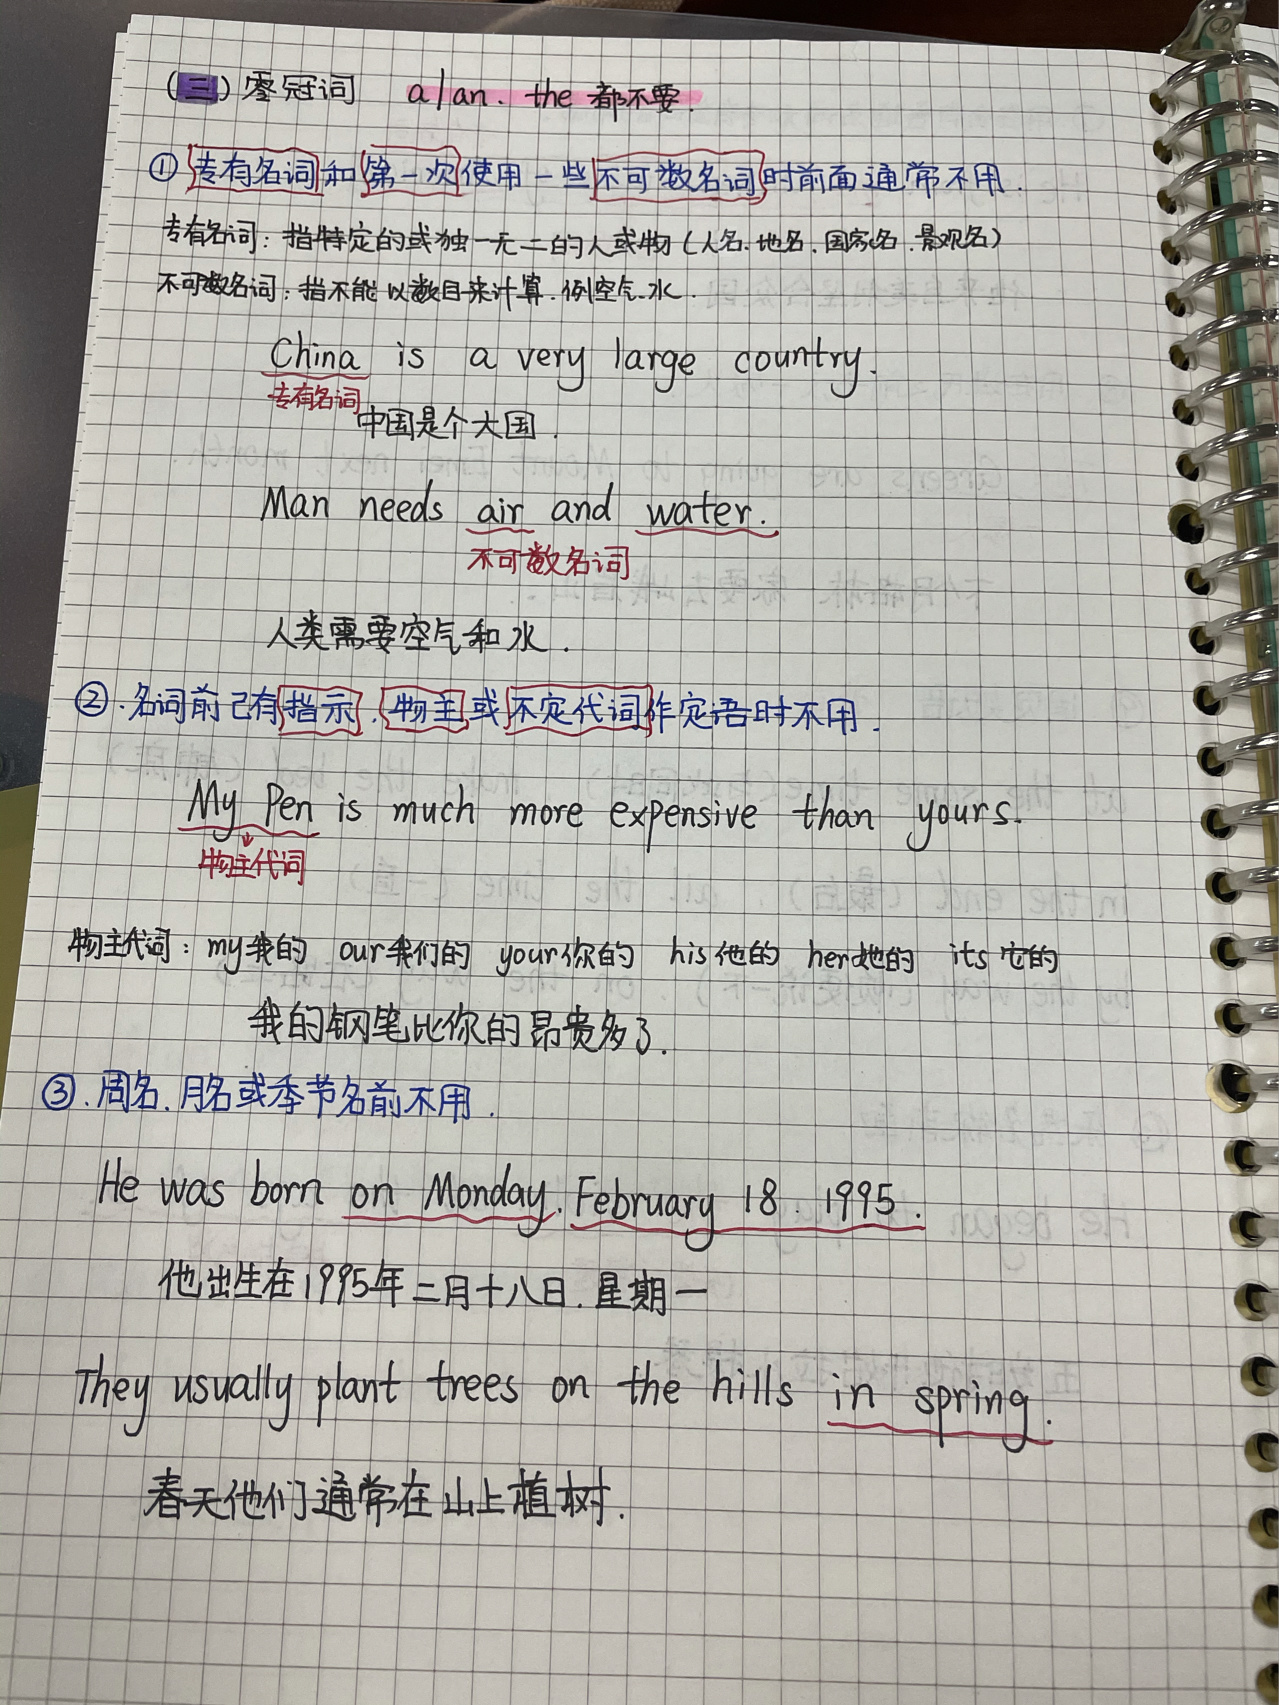 (三) 零冠词 a/an、the 都不要.
① 专有名词和第一次使用一些不可数名词时前面通常不用.
专有名词: 指特定的或独一无二的人或物 (人名.地名.国家名.景观名)
不可数名词: 指不能以数目来计算.例空气.水.
China is a very large country.
专有名词
中国是个大国.
Man needs air and water.
不可数名词
人类需要空气和水.
②.名词前已有指示.物主或不定代词作定语时不用.
My Pen is much more expensive than yours.
物主代词
物主代词: my我的 our我们的 your你的 his他的 her她的 its它的
我的钢笔比你的昂贵多了.
③.周名.月名或季节名前不用.
He was born on Monday. February 18. 1995.
他出生在1995年二月十八日.星期一
They usually plant trees on the hills in spring.
春天他们通常在山上植树.